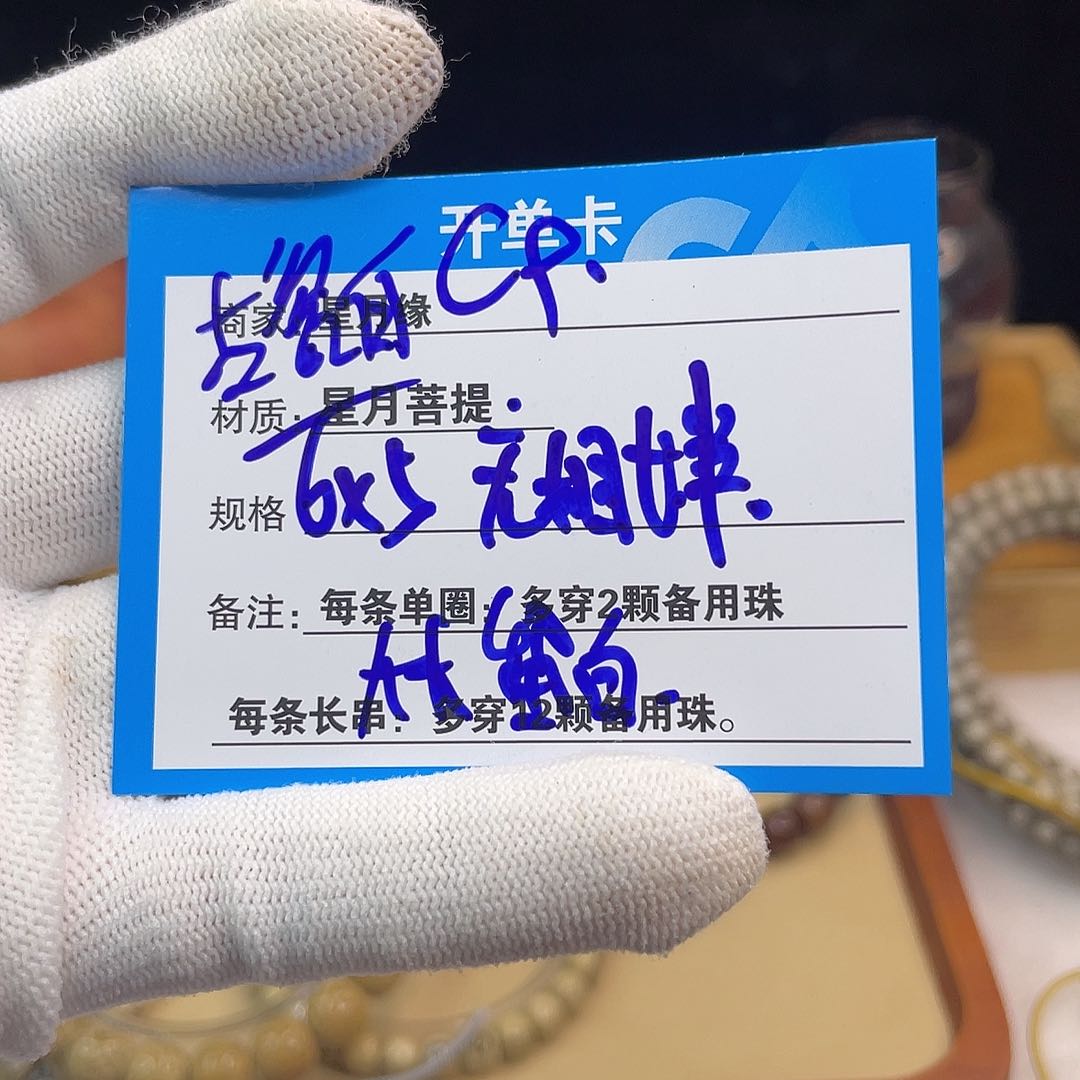 开单卡
CP.
商家：星月缘
材质：星月菩提
规格 6x5 无相
备注：每条单圈：多穿2颗备用珠
A+ 蛋白.
每条长串：多穿12颗备用珠。